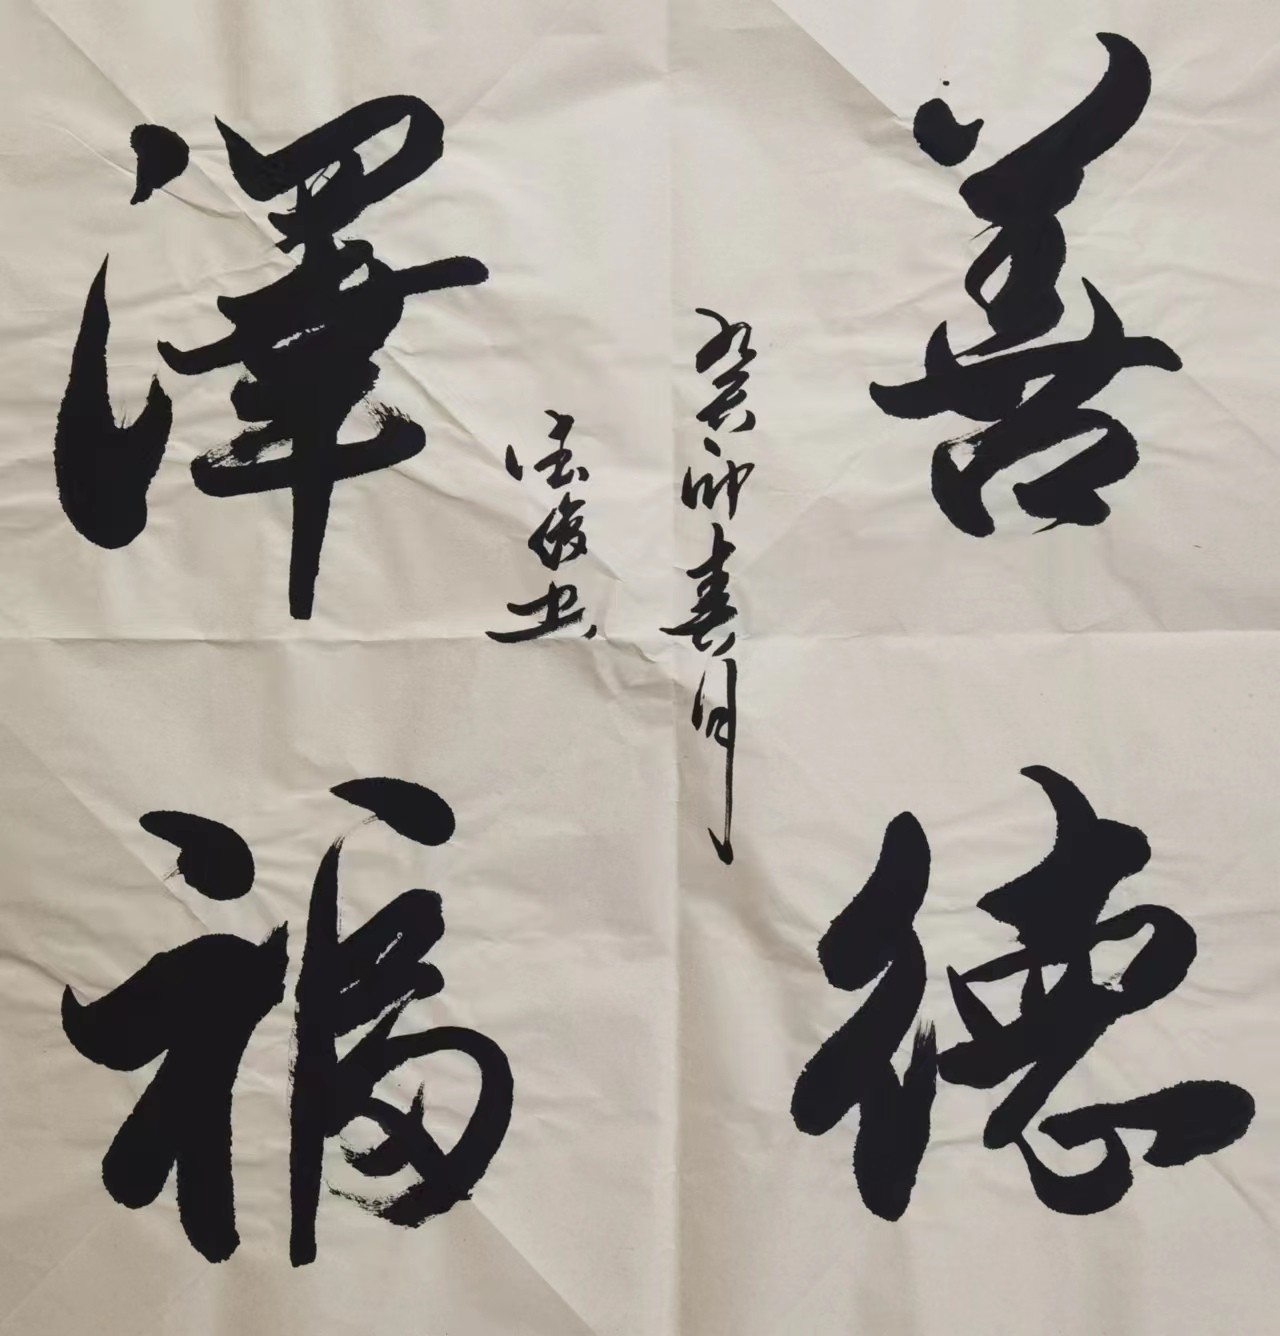 善德
澤福
癸卯春月
宝俊书